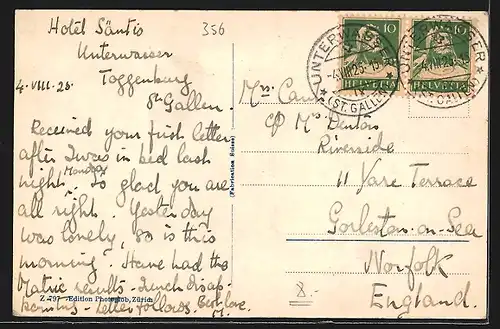 Hotel Säntis
356
Unterwasser
Toggenburg
4.VIII.25.
St Gallen.
Received your first letter
after I was in bed last
night. Monday So glad you are
all right. Yesterday
was lonely, so is this
morning. Have had the
Matric results - much disap-
pointing - letter follows. Best love.
M.
Z 797 -Edition Photoglob, Zürich
(Fabrication Suisse)
10
10
HELVETIA
HELVETIA
UNTERWASSER
(ST. GALLEN)
UNTERWASSER
(ST. GALLEN)
Mrs
c/o Mrs Denton
Riverside
11 Yare Terrace
Gorleston-on-Sea
Norfolk
England.